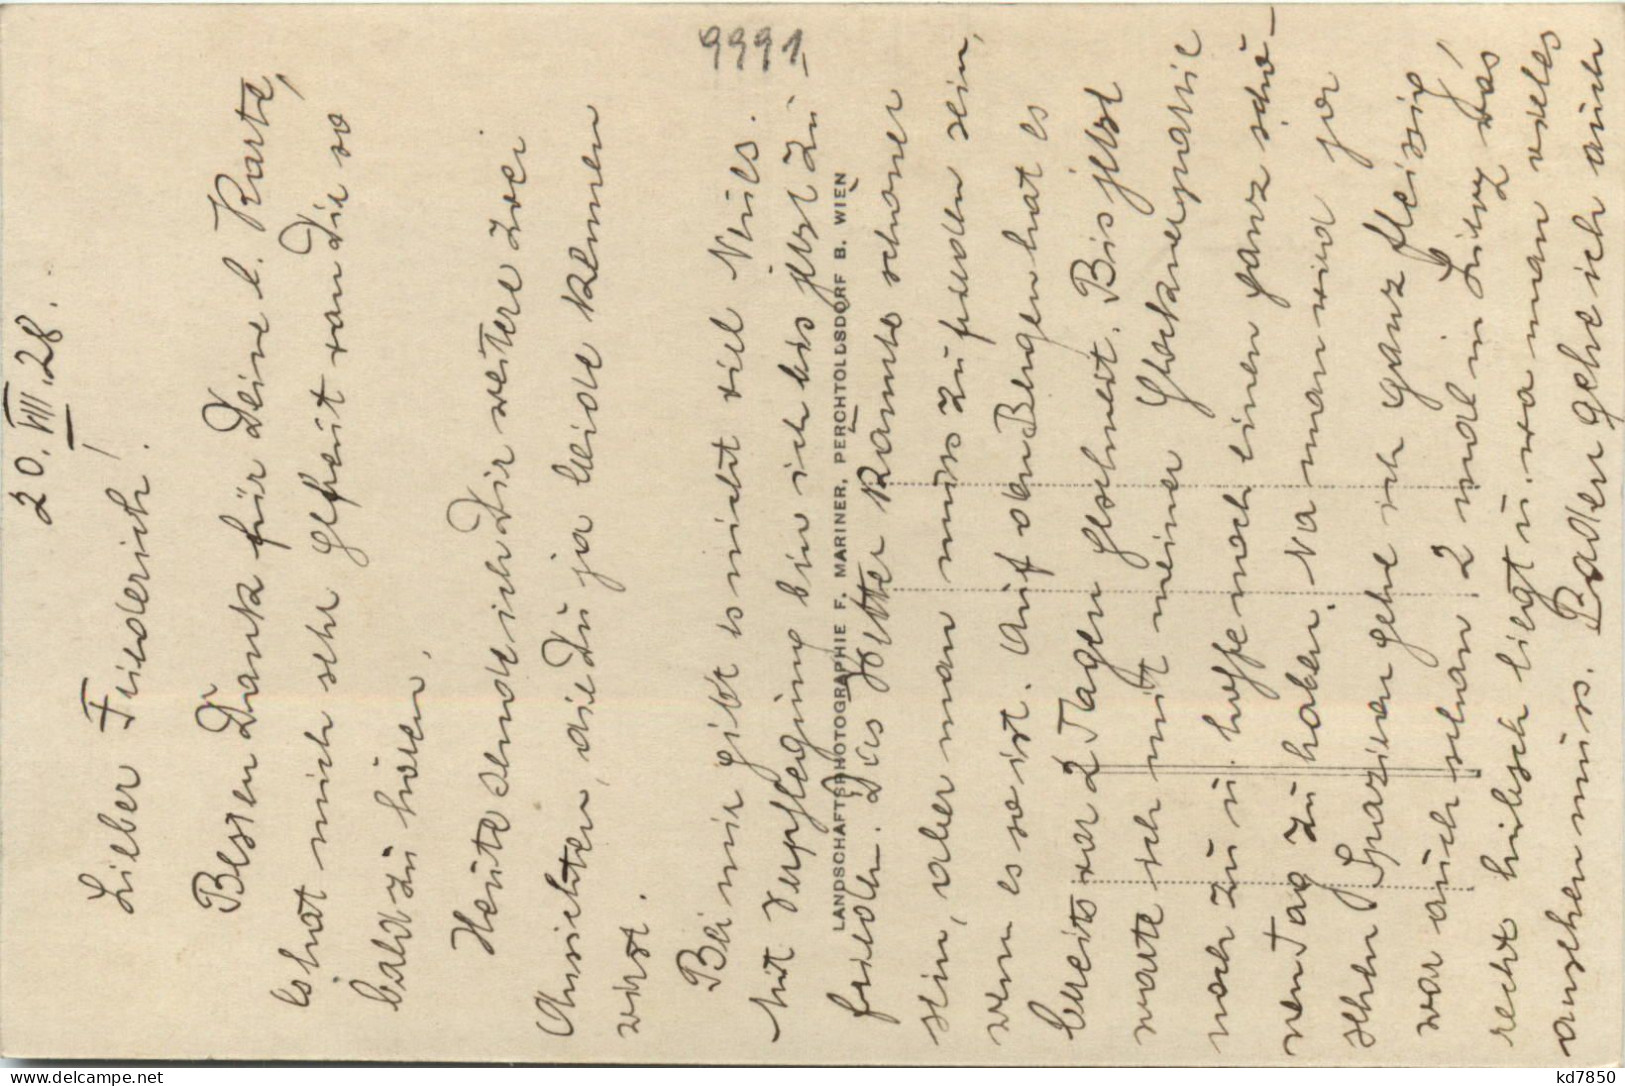 20. VIII. 28.
Lieber Friederich!
Besten Dank für Deine l. Karte,
es hat mich sehr gefreut von Dir so
bald zu hören.
Heute sende ich Dir weitere zwei
Ansichten, die Du ja beide kennen
wirst.
9991
Bei mir gibt es nicht viel Neues.
Mit Verpflegung bin ich bis jetzt zu-
frieden. Das Wetter könnte schöner
sein, aber man muss zufrieden sein,
wenn es so ist. Auf den Bergen hat es
bereits vor 2 Tagen geschneit. Bis jetzt
warte ich mit meiner Glocknerpartie
noch zu u. hoffe noch einen ganz schö-
nen Tag zu haben. Na man wird ja
sehen. Spazieren gehe ich ganz fleissig,
war auch schon 2 mal in Lienz, was
recht hübsch liegt u. wo man vieles
ansehen muss. Baden gehe ich auch
LANDSCHAFTSPHOTOGRAPHIE F. MARINER, PERCHTOLDSDORF B. WIEN
kd7850